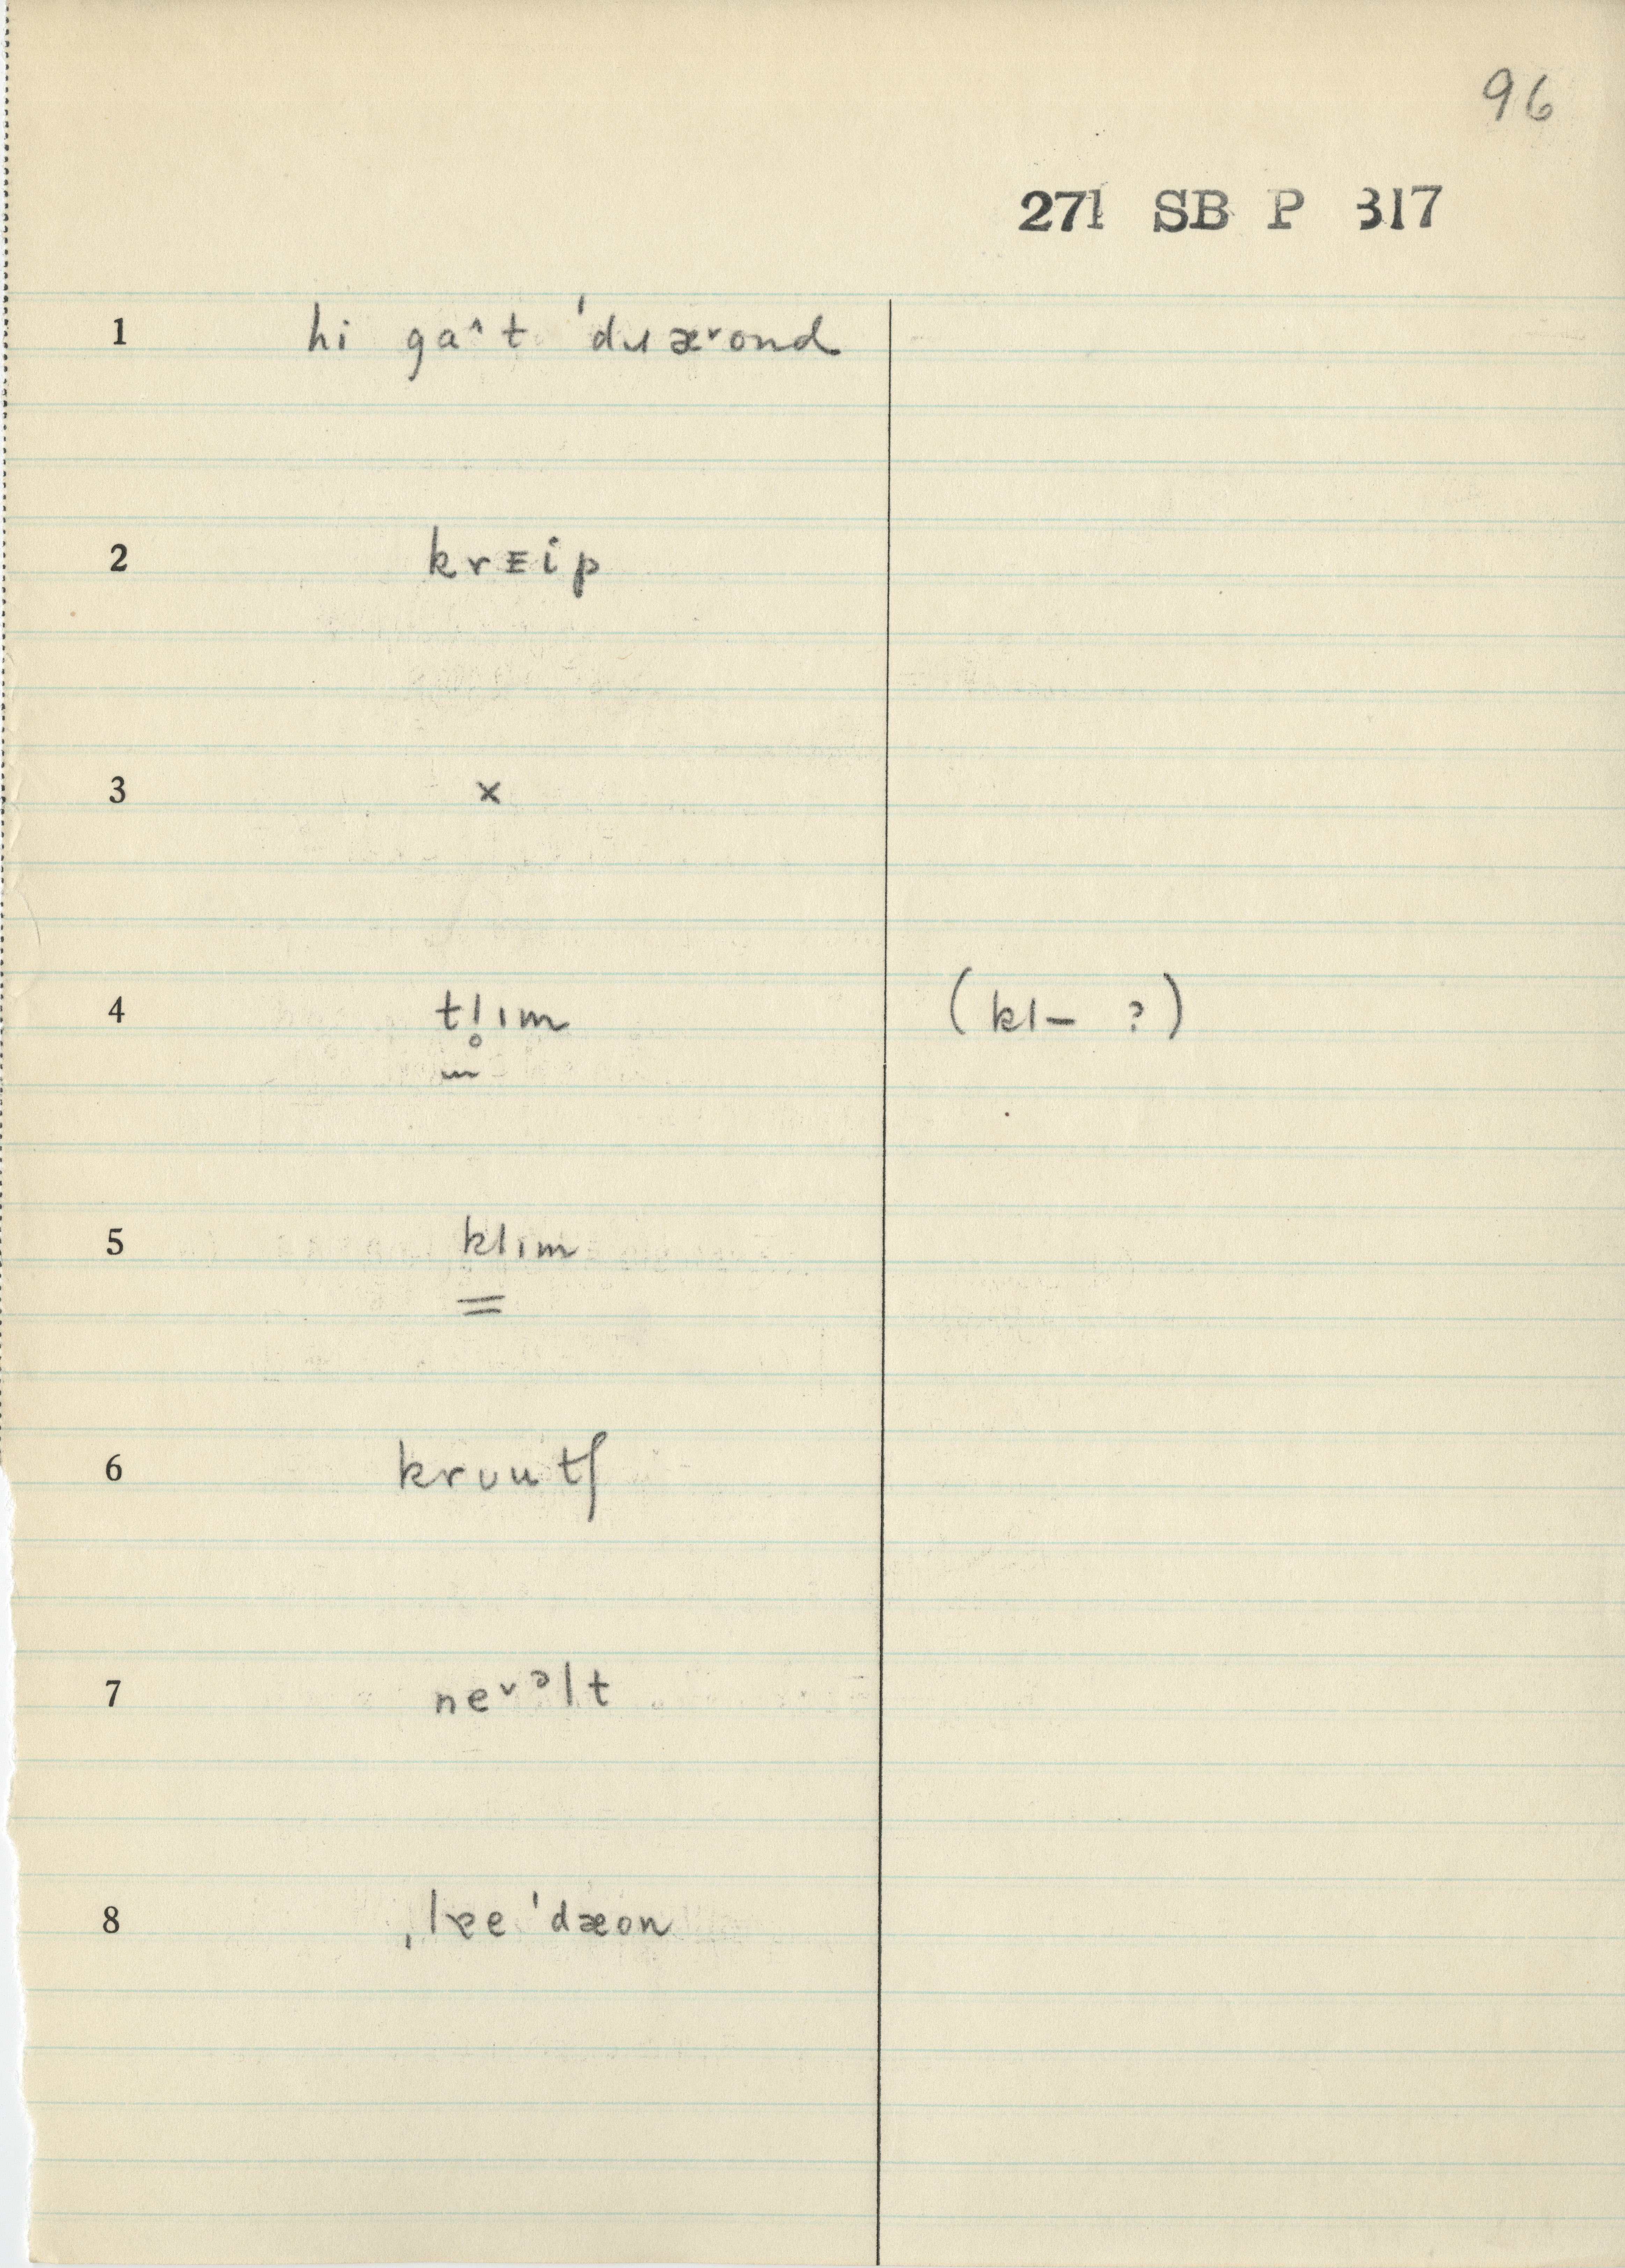 96
271 SB P 317
1 hi ga˄t ˈdɹæ˅ond
2 krᴇip
3 ×
4 tl̥ɪm (kl– ?)
5 klɪm
6 krʊutʃ
7 ne˅ᵊlt
8 ˌlɐe ˈdæon